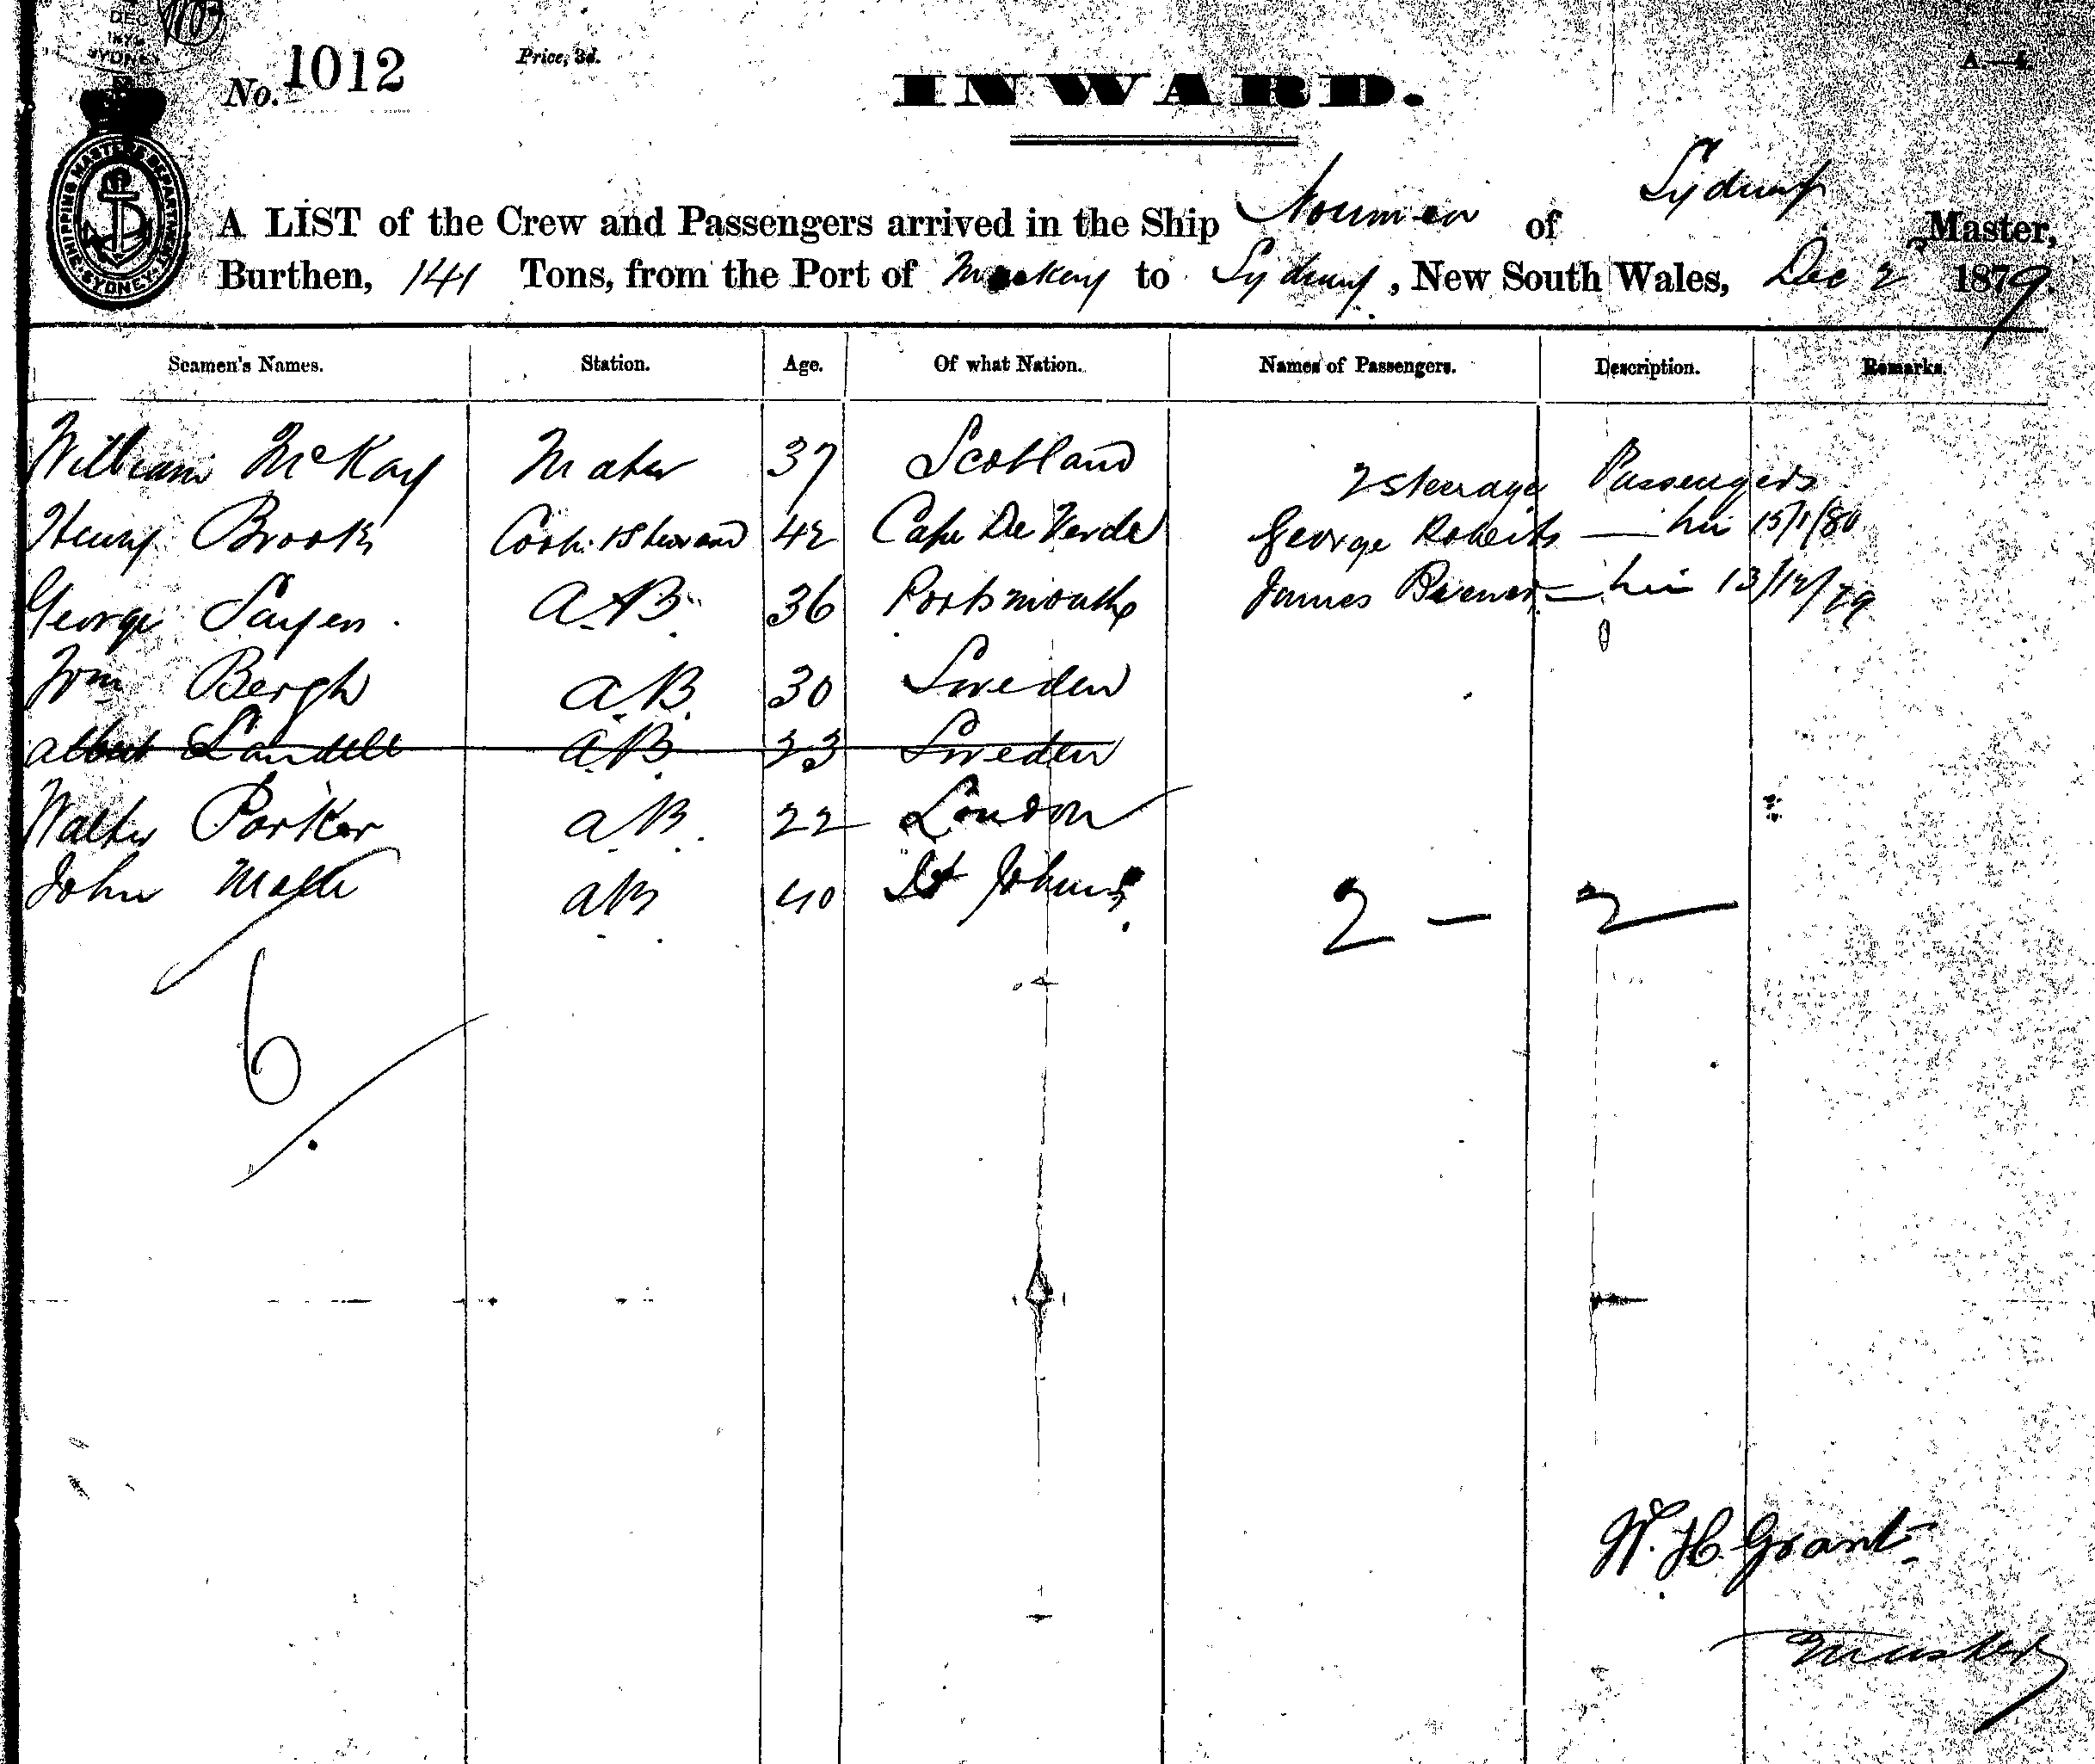 DEC
SYDNEY
No. 1012
Price, 3d.
INWARD.
SHIPPING MASTER'S DEPARTMENT SYDNEY
A LIST of the Crew and Passengers arrived in the Ship Noumea of Sydney, Master,
Burthen, 141 Tons, from the Port of Mackay to Sydney, New South Wales, Dec 2 1879.
Seamen's Names. Station. Age. Of what Nation. Names of Passengers. Description. Remarks.
William McKay Mate 37 Scotland 2 steerage Passengers
Henry Brooks Cook & Steward 42 Cape De Verde George Roberts — 15/1/80
George A.B. 36 Portsmouth James — 13/12/79
Bergh A.B. 30 Sweden
Albert Landell A.B. 23 Sweden
Walter Parker A.B. 22 London
John AB 40 St Johns
2 — 2 —
6
W. H. Grant
Master